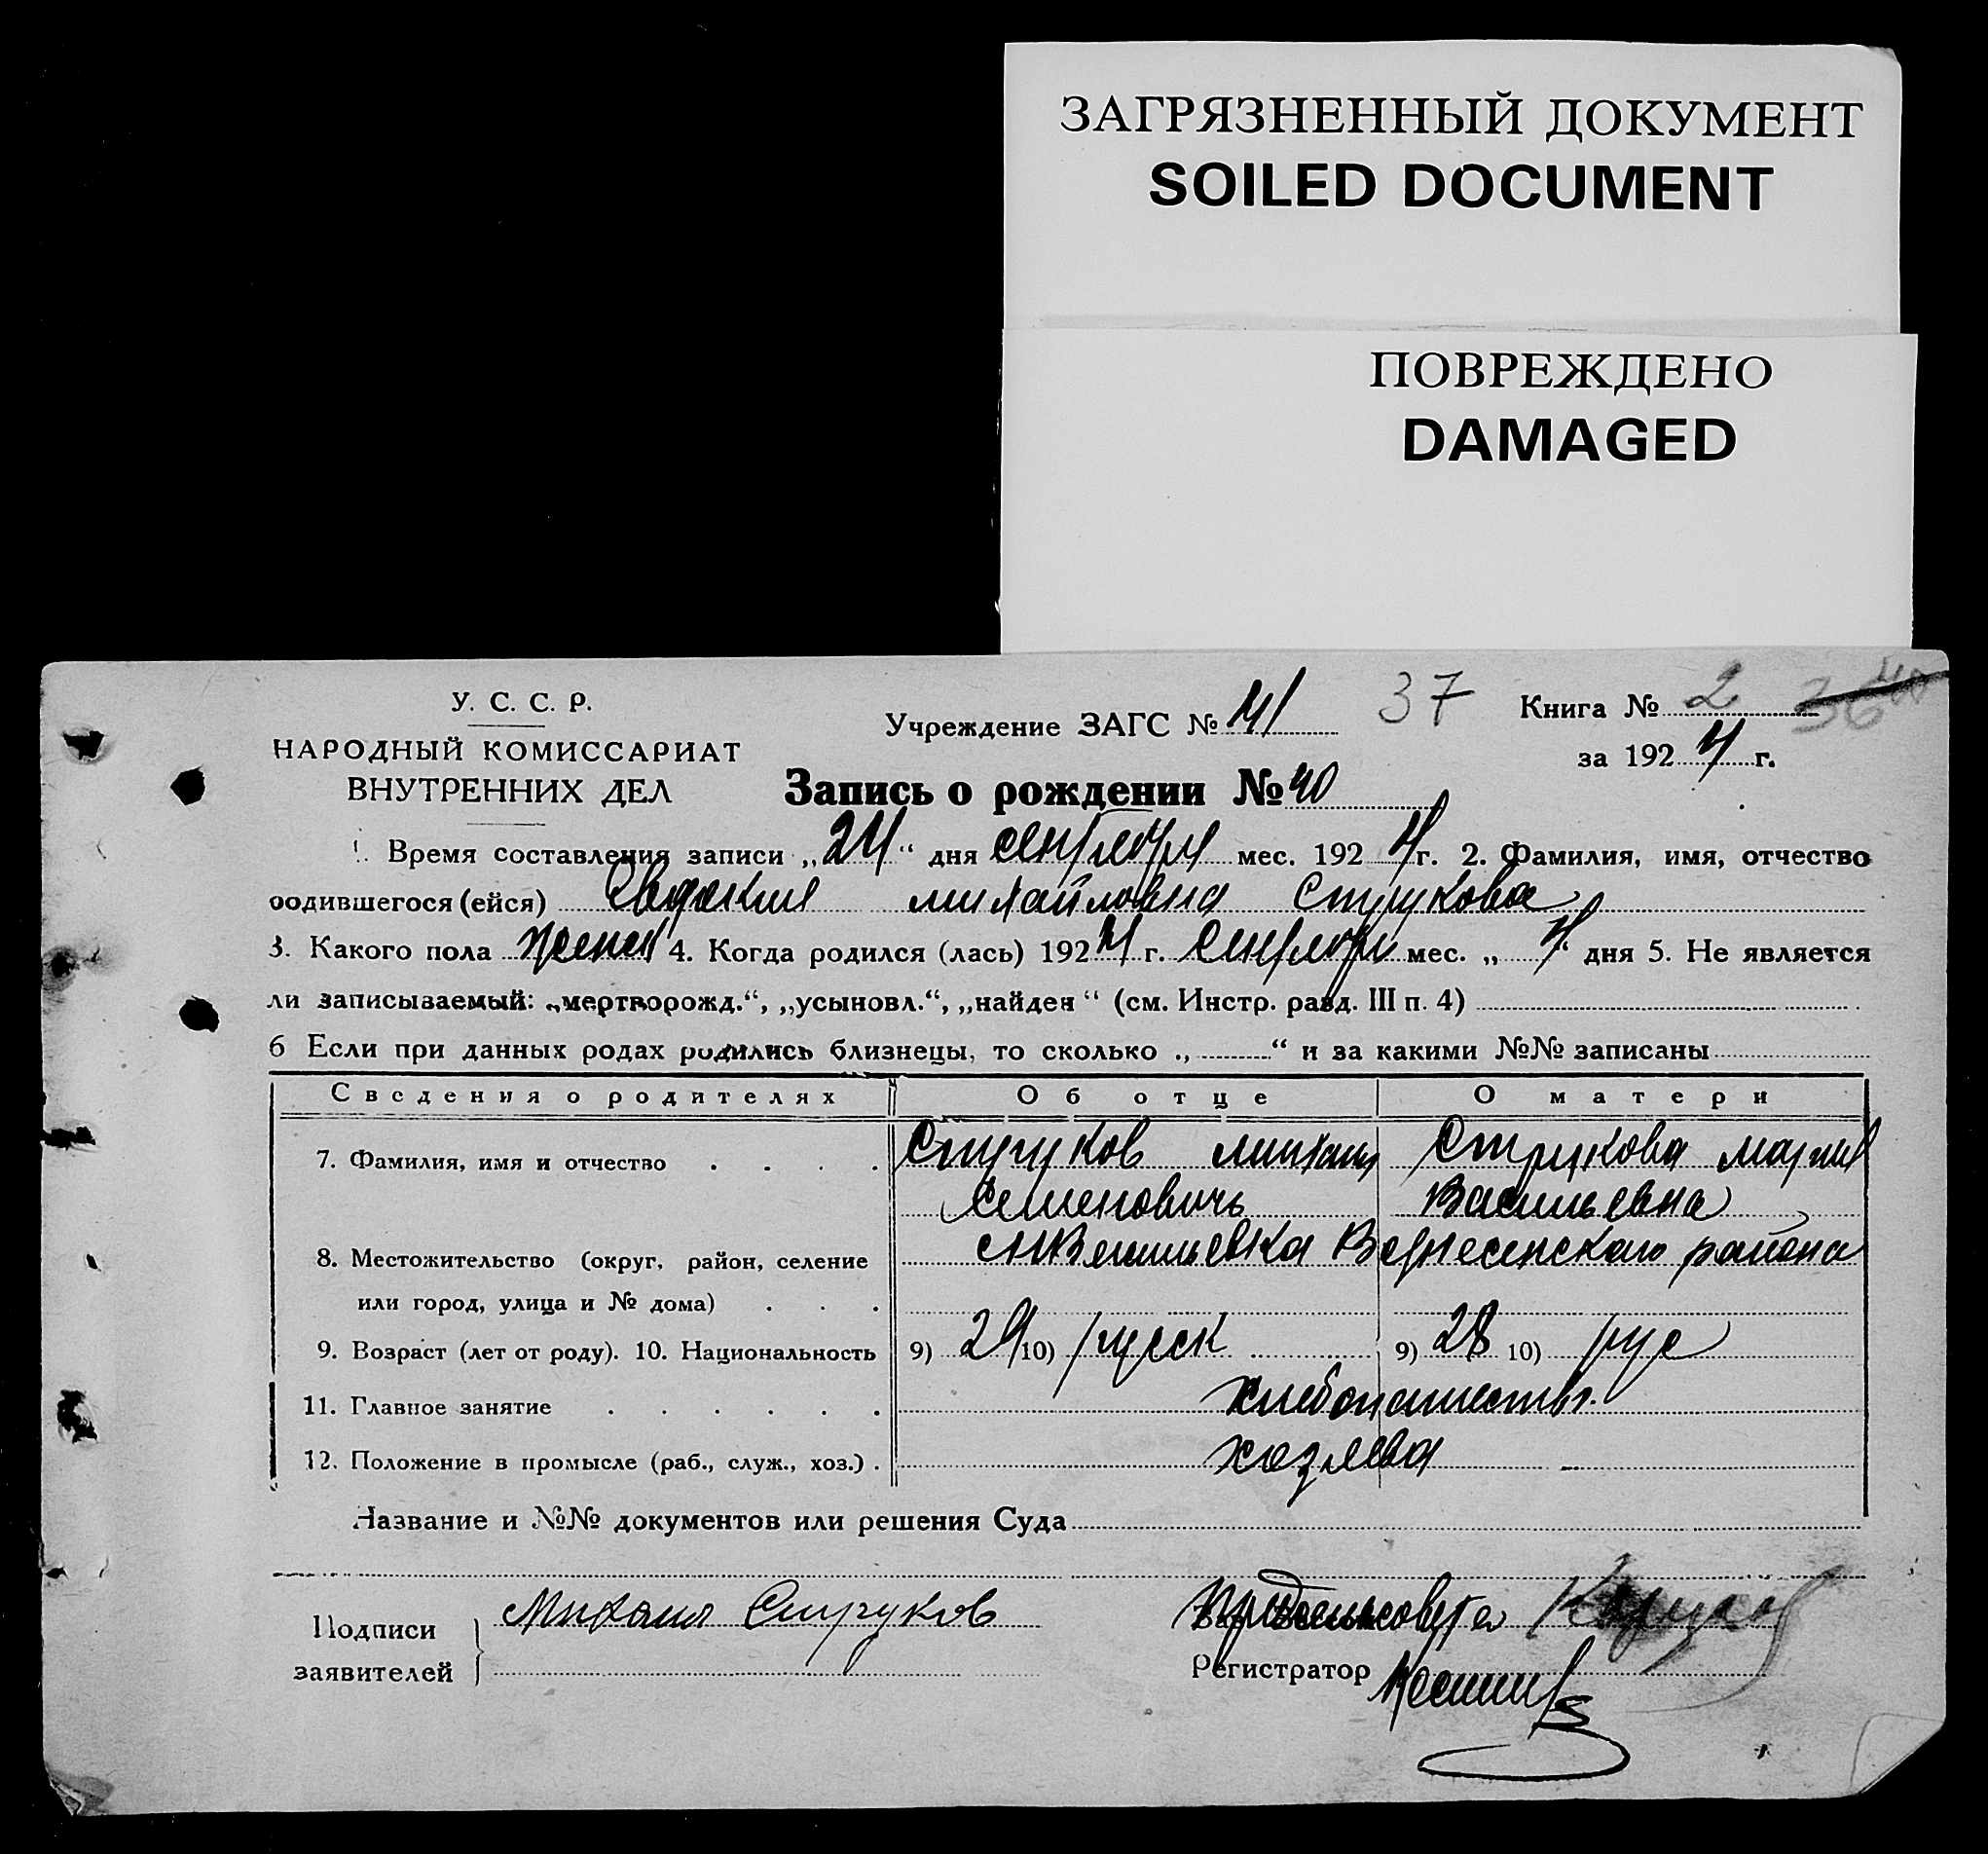 ЗАГРЯЗНЕННЫЙ ДОКУМЕНТ
SOILED DOCUMENT
ПОВРЕЖДЕНО
DAMAGED
У. С. С. Р.
НАРОДНЫЙ КОМИССАРИАТ
ВНУТРЕННИХ ДЕЛ
Учреждение ЗАГС № 41 37
Книга № 2 36 40
за 1924 г.
Запись о рождении № 40
1. Время составления записи „24“ дня сентября мес. 1924 г. 2. Фамилия, имя, отчество
родившегося (ейся) Евдокия михайловна Струкова
3. Какого пола женск 4. Когда родился (лась) 1924 г. Сентября мес. „4“ дня 5. Не является
ли записываемый: „мертворожд.“, „усыновл.“, „найден“ (см. Инстр. разд. III п. 4)
6 Если при данных родах родились близнецы, то сколько „ “ и за какими №№ записаны
Сведения о родителях Об отце О матери
7. Фамилия, имя и отчество Струков михаил Струкова мария
Семеновичь Васильевна
8. Местожительство (округ, район, селение Вознесенского района
или город, улица и № дома)
9. Возраст (лет от роду). 10. Национальность 9) 29 10) русск 9) 28 10) рус
11. Главное занятие хлебопашество
12. Положение в промысле (раб., служ., хоз.) хозяева
Название и №№ документов или решения Суда
Подписи
заявителей
Михаил Струков
Регистратор